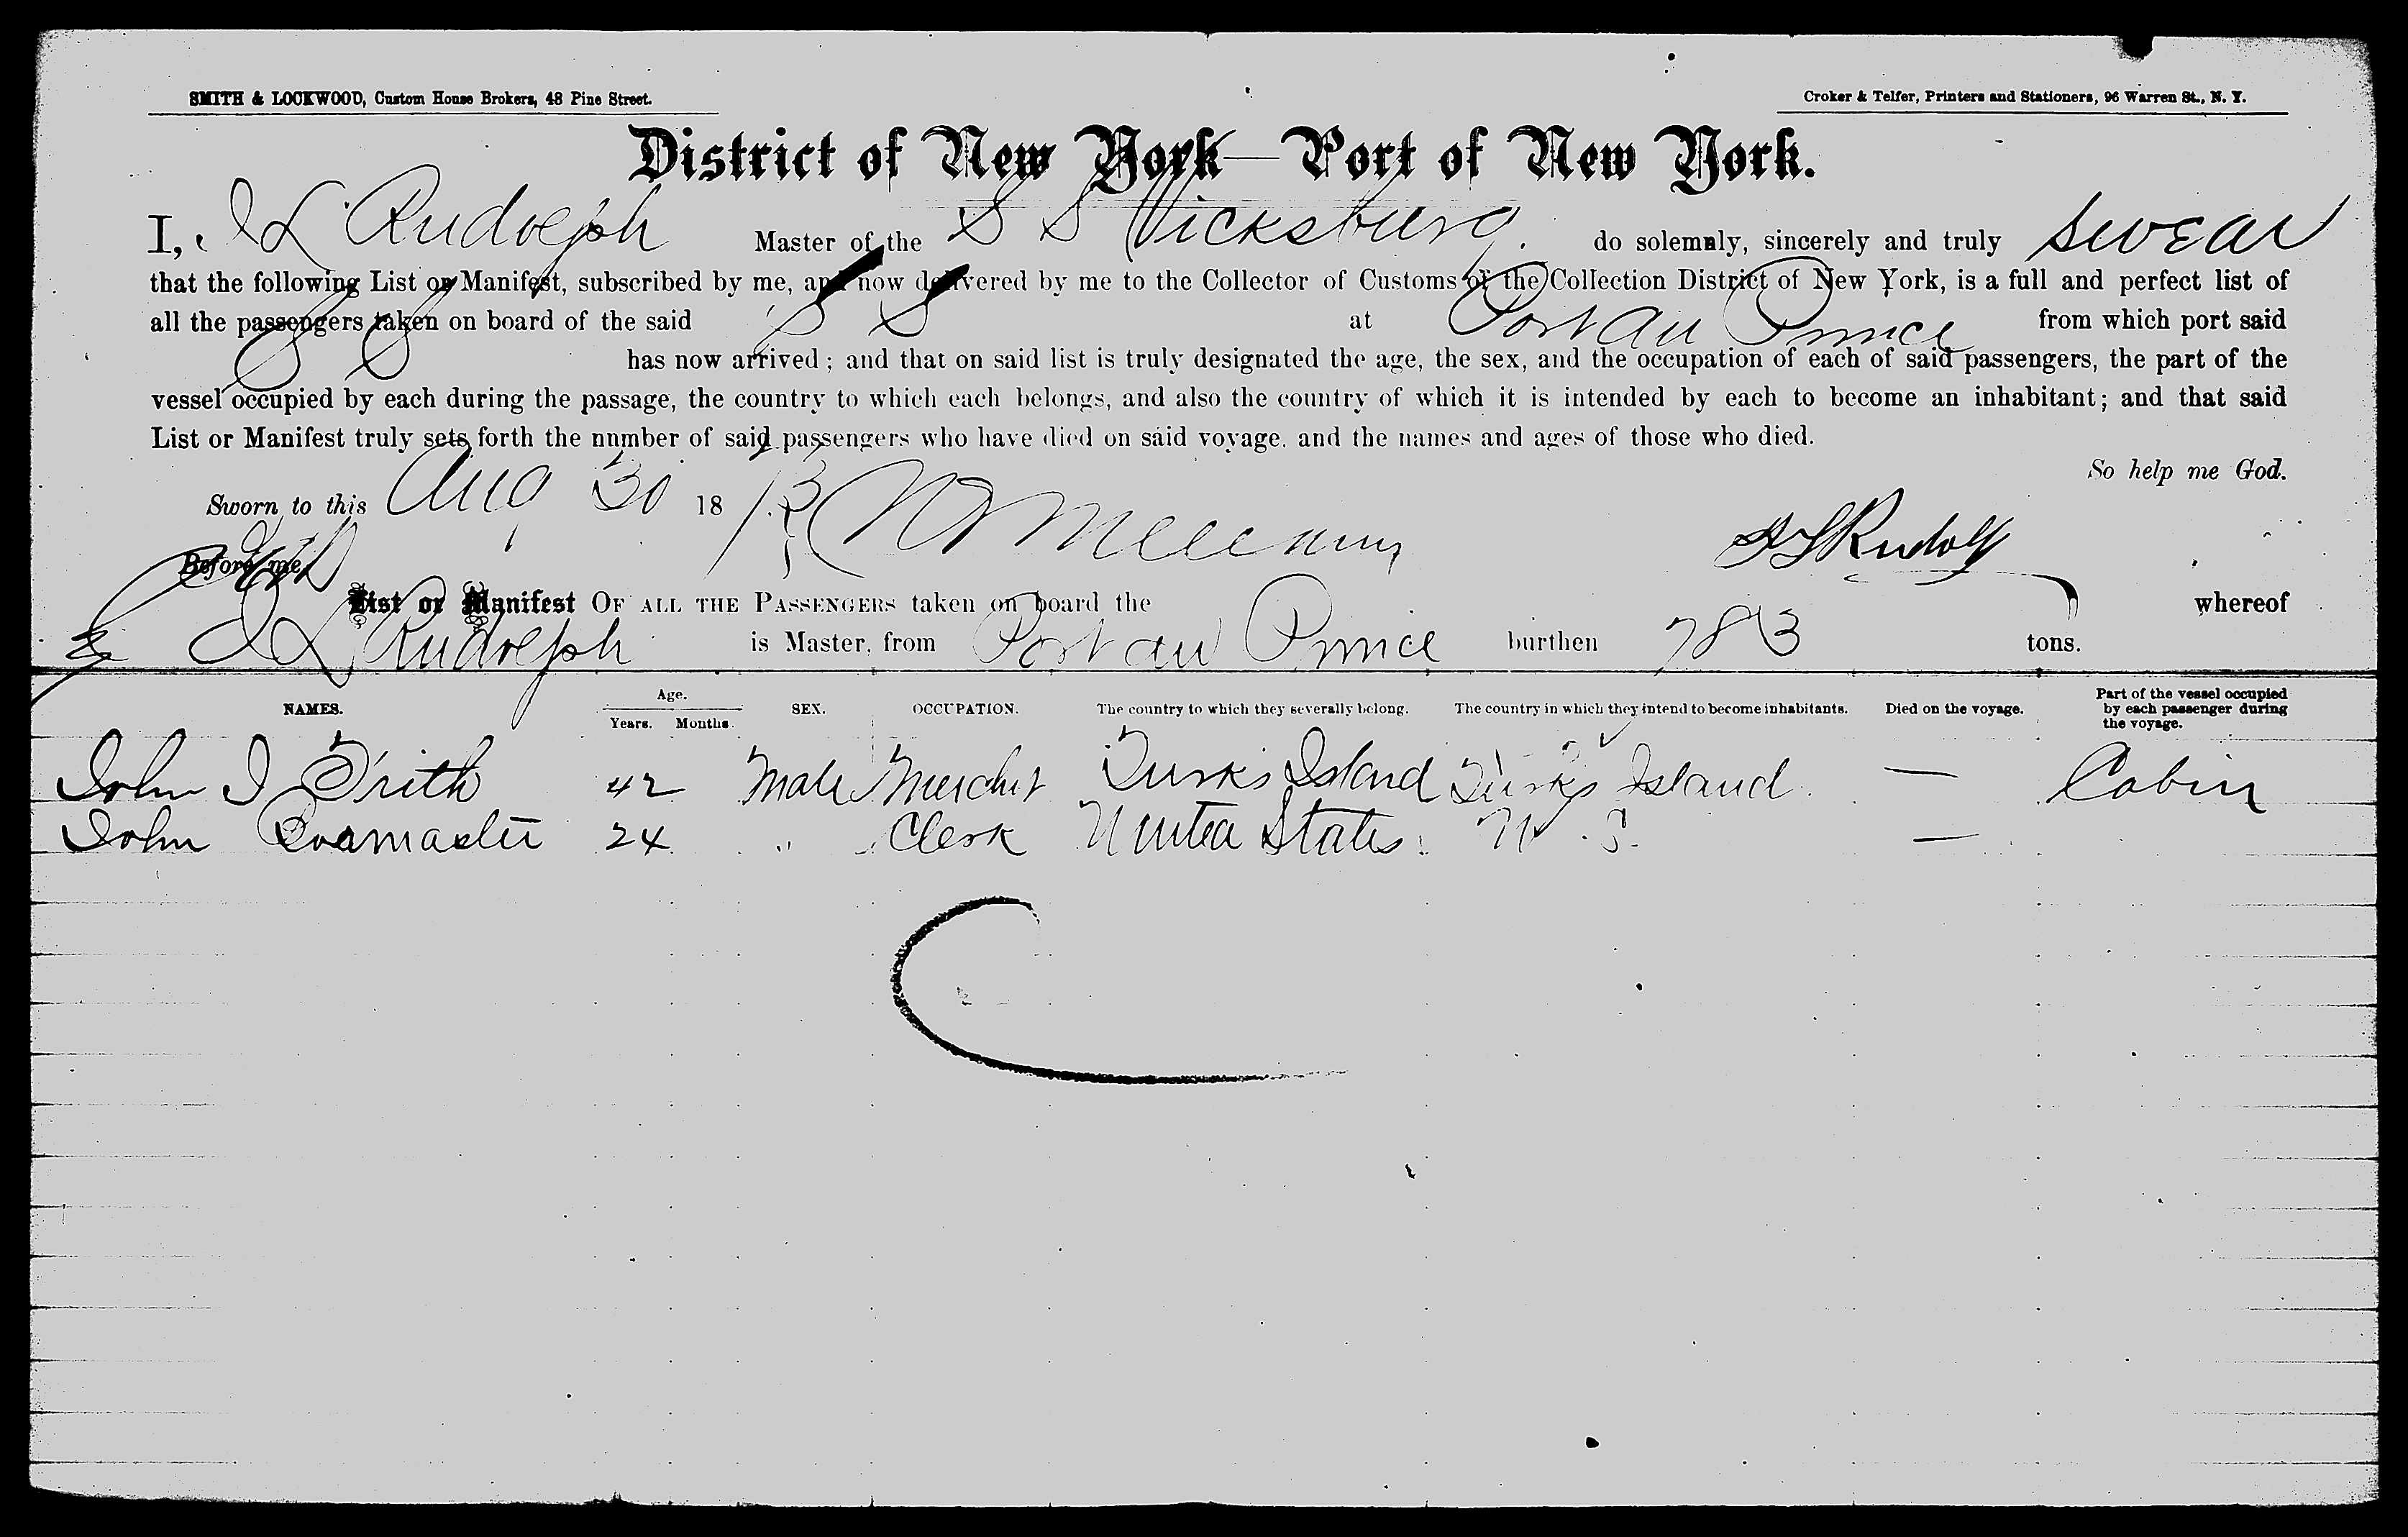 SMITH & LOCKWOOD, Custom House Brokers, 48 Pine Street.
Croker & Telfer, Printers and Stationers, 96 Warren St., N. Y.
District of New York—Port of New York.
I, Rudolph Master of the S S Vicksburg. do solemnly, sincerely and truly swear
that the following List or Manifest, subscribed by me, and now delivered by me to the Collector of Customs of the Collection District of New York, is a full and perfect list of
all the passengers taken on board of the said S S at Port au Prince from which port said
S S has now arrived; and that on said list is truly designated the age, the sex, and the occupation of each of said passengers, the part of the
vessel occupied by each during the passage, the country to which each belongs, and also the country of which it is intended by each to become an inhabitant; and that said
List or Manifest truly sets forth the nnmber of said passengers who have died on said voyage, and the names and ages of those who died.
So help me God.
Sworn to this Aug 30 1873
Before me,
List or Manifest OF ALL THE PASSENGERS taken on board the whereof
Rudolph is Master, from Port au Prince burthen 783 tons.
NAMES. Age. Years. Months. SEX. OCCUPATION. The country to which they severally belong. The country in which they intend to become inhabitants. Died on the voyage. Part of the vessel occupied by each passenger during the voyage.
John J Frith 42 Male Merchnt Turks Island Turks Island. — Cabin
John 24 " Clerk United States. U. S. —